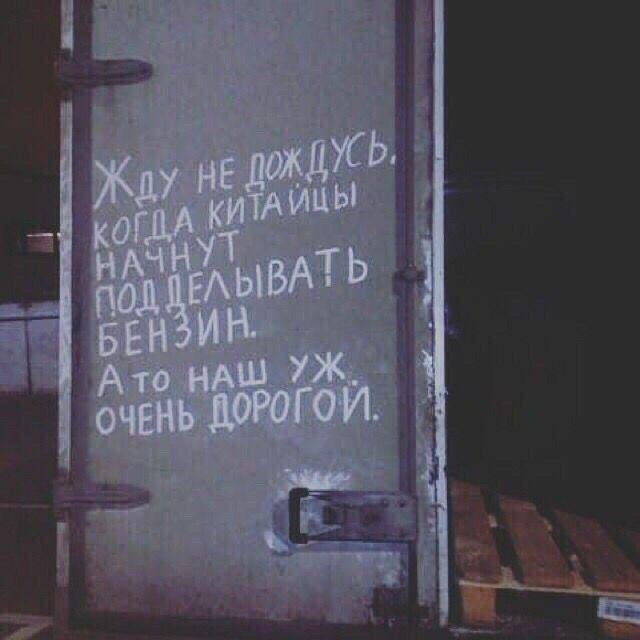 Жду не дождусь,
когда китайцы
начнут
подделывать
бензин.
А то наш уж
очень дорогой.